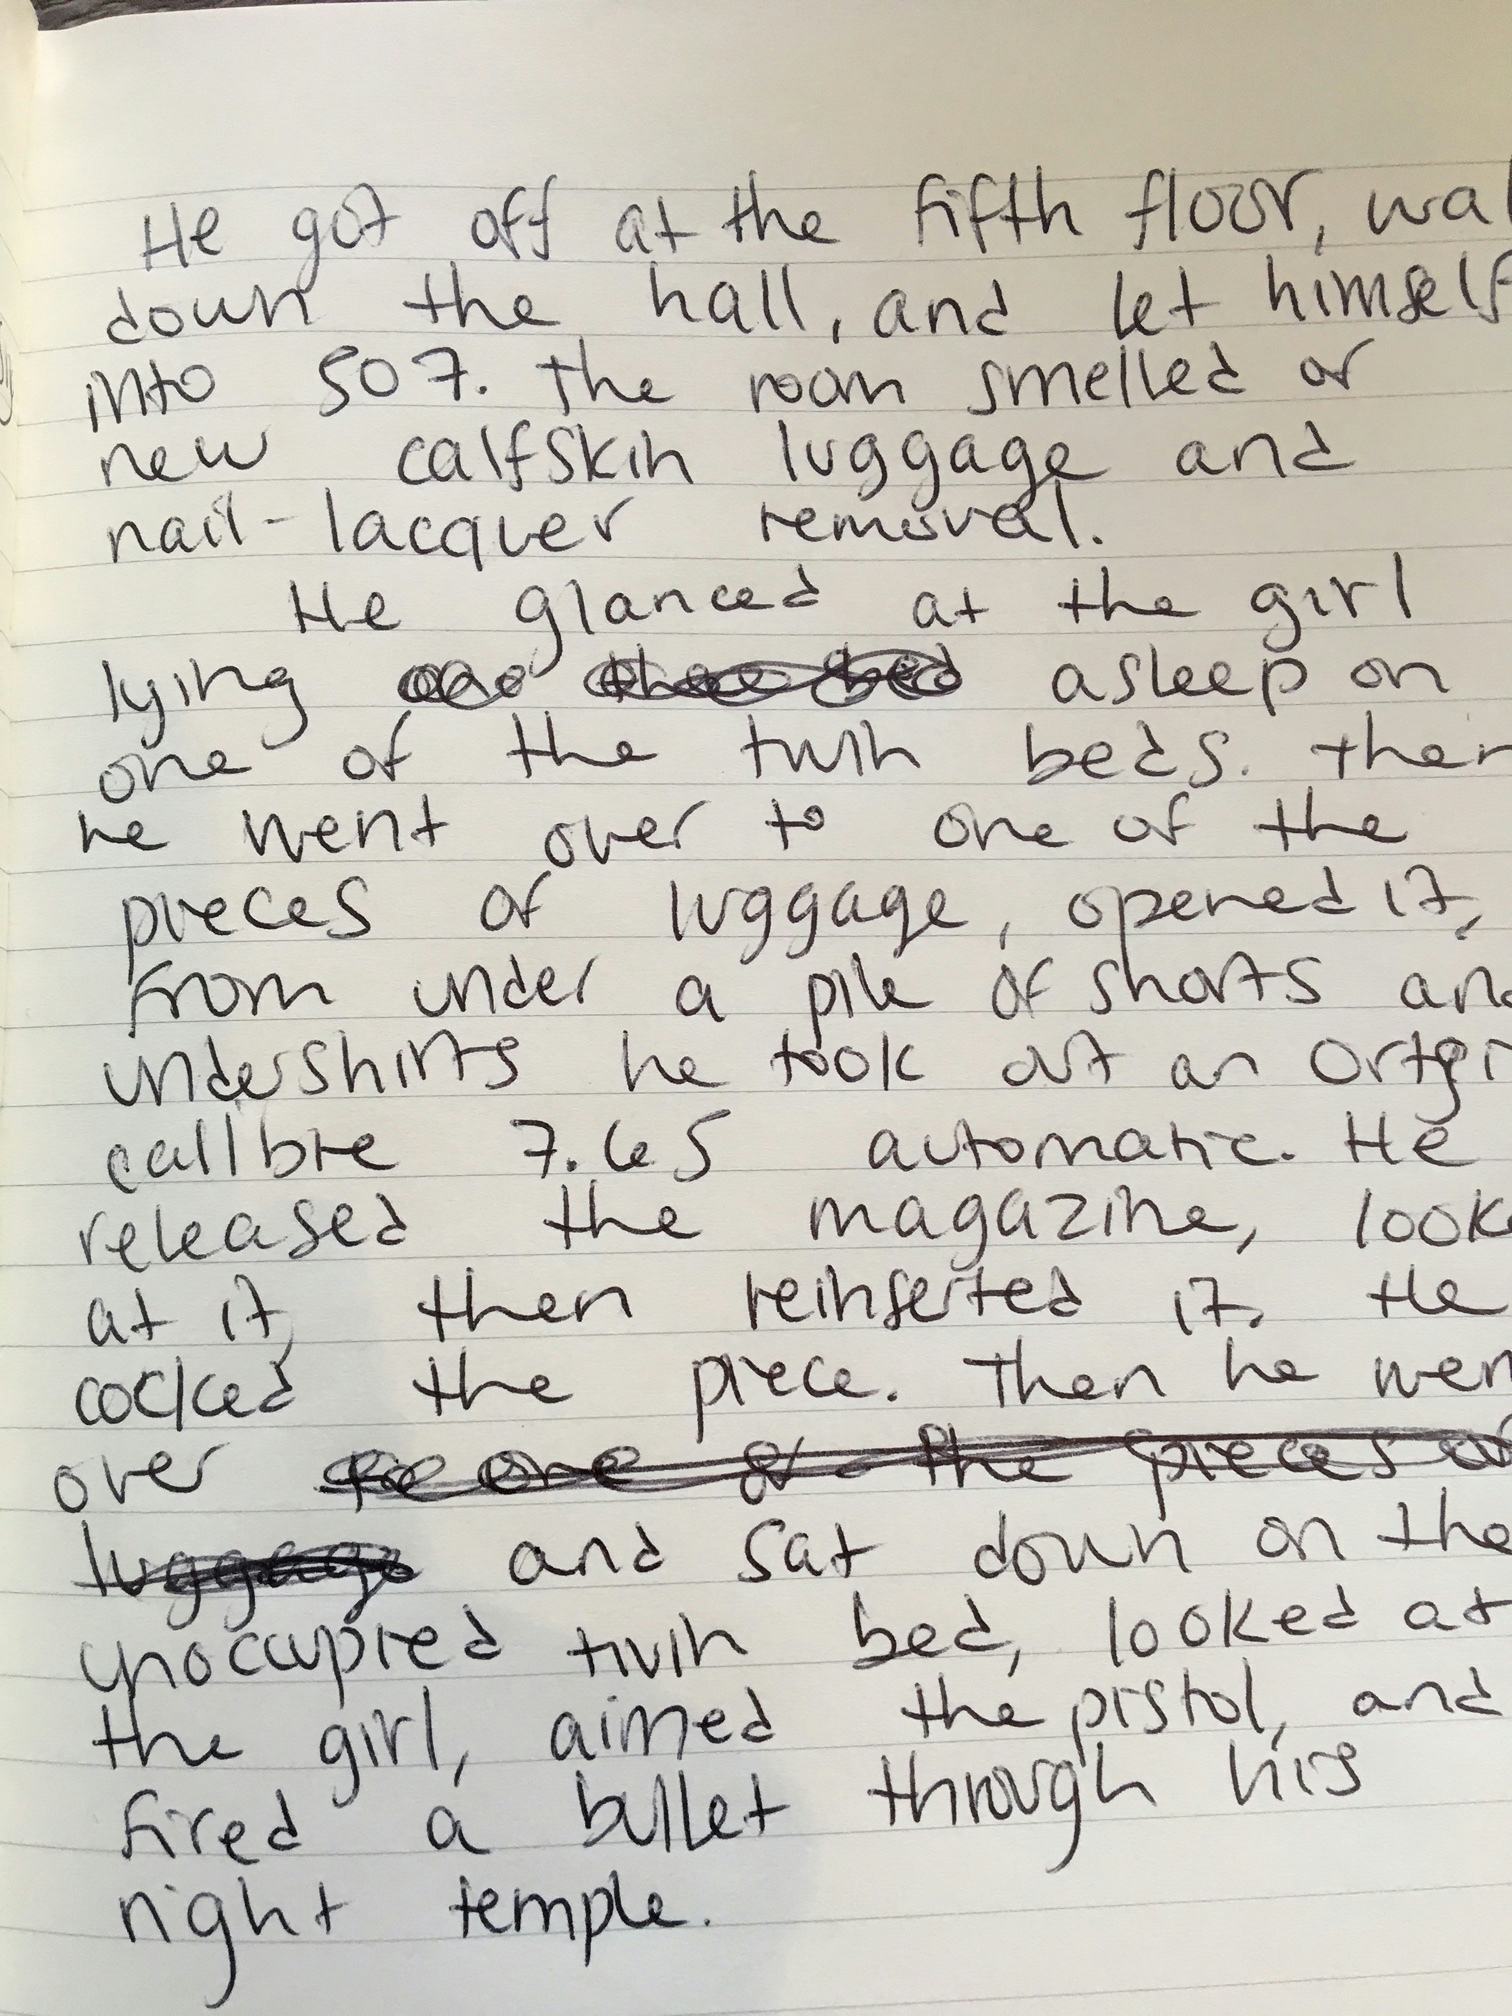 He got off at the fifth floor, wal
down the hall, and let himself
into 507. The room smelled of
new calfskin luggage and
nail-lacquer removal.
He glanced at the girl
lying asleep on
one of the twin beds. Then
he went over to one of the
pieces of luggage, opened it,
from under a pile of shorts and
undershirts he took out an Ortgi
calibre 7.65 automatic. He
released the magazine, look
at it, then reinserted it. He
cocked the piece. Then he wen
over to one of the pieces of
luggage and sat down on the
unoccupied twin bed, looked at
the girl, aimed the pistol, and
fired a bullet through his
right temple.